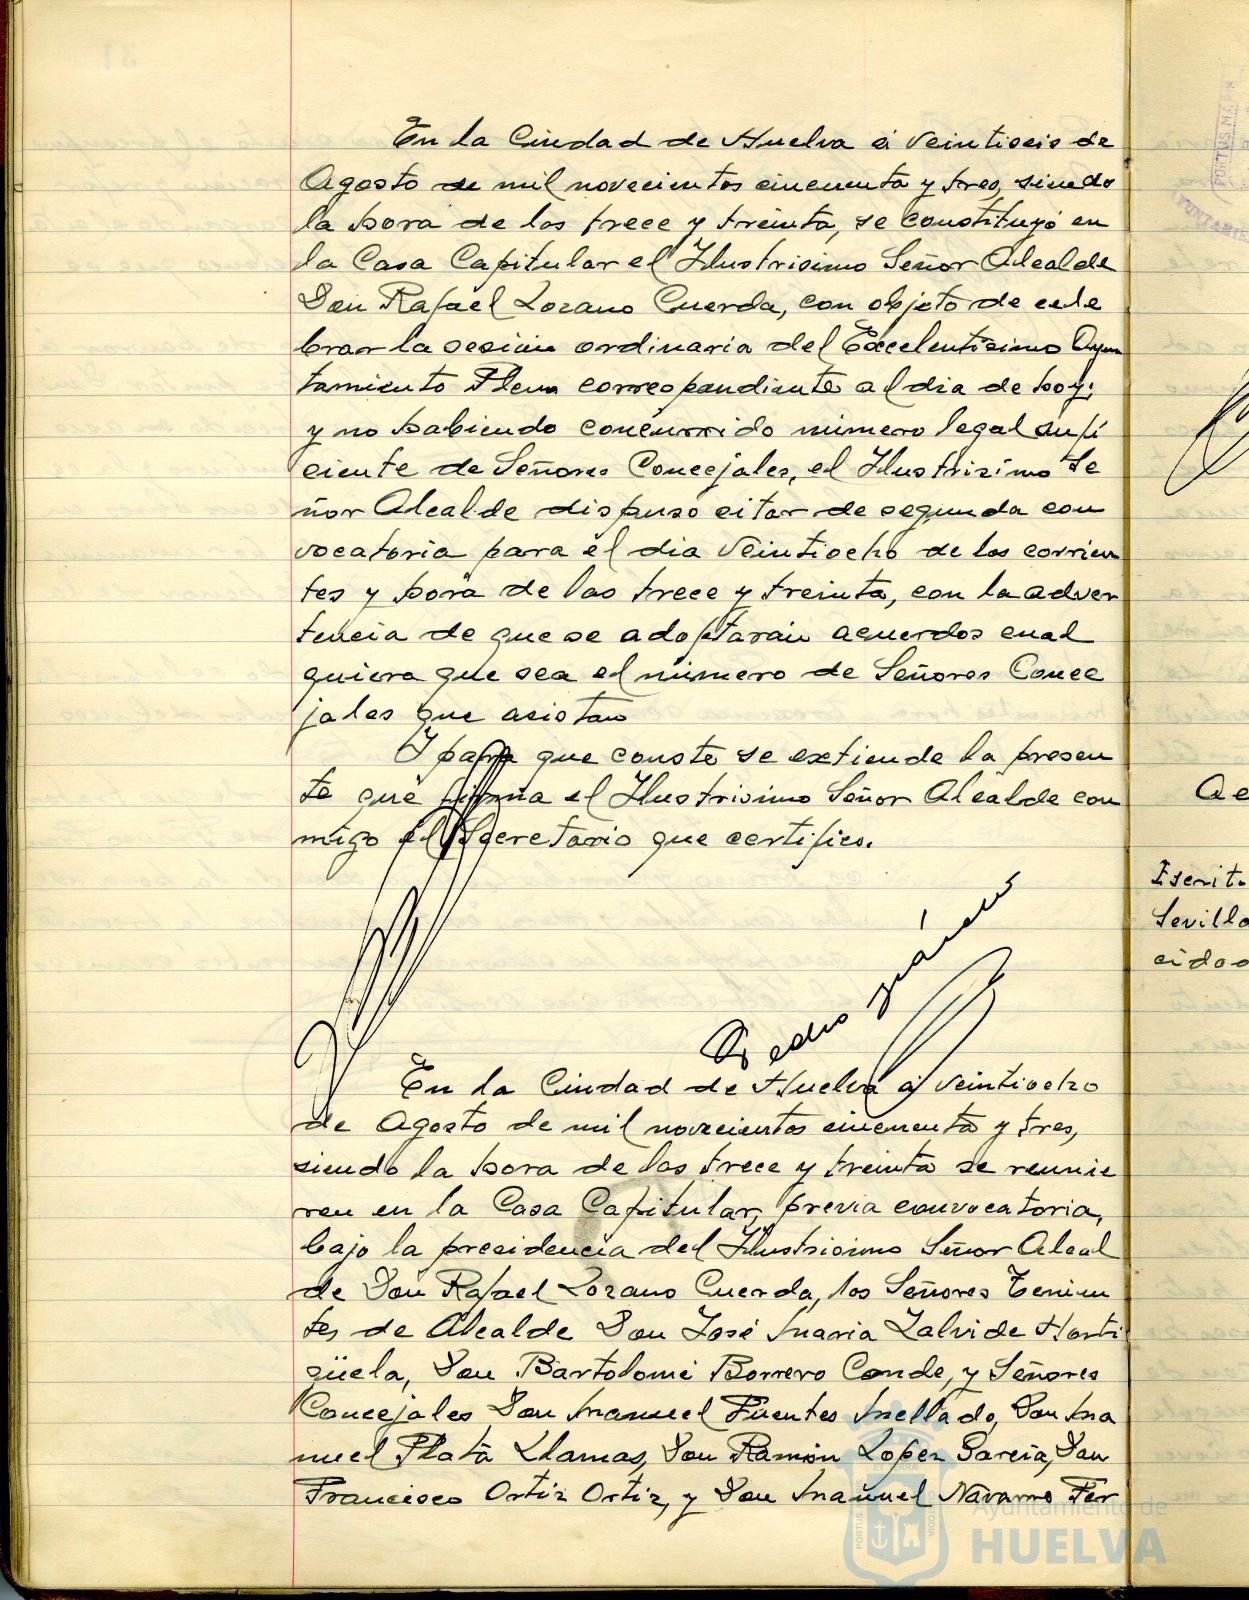 En la Ciudad de Huelva á veintiseis de
Agosto de mil novecientos cincuenta y tres, siendo
la hora de las trece y treinta, se constituyó en
la Casa Capitular el Ilustrisimo Señor Alcalde
Don Rafael Lozano Cuerda, con objeto de cele
brar la sesión ordinaria del Excelentisimo Ayun
tamiento Pleno correspondiente al dia de hoy;
y no habiendo concurrido número legal sufi
ciente de Señores Concejales, el Ilustrisimo Se
ñor Alcalde dispuso citar de segunda con
vocatoria para el dia veintiocho de los corrien
tes y hora de las trece y treinta, con la adver
tencia de que se adoptarán acuerdos cual
quiera que sea el número de Señores Conce
jales que asistan
Y para que conste se extiende la presen
te que firma el Ilustrisimo Señor Alcalde con
migo el Secretario que certifico.
Pedro
En la Ciudad de Huelva á veintiocho
de Agosto de mil novecientos cincuenta y tres,
siendo la hora de las trece y treinta se reunie
ron en la Casa Capitular, previa convocatoria,
bajo la presidencia del Ilustrisimo Señor Alcal
de Don Rafael Lozano Cuerda, los Señores Tenien
tes de Alcalde Don José Maria Zalvide Horti
güela, Don Bartolomé Borrero Conde, y Señores
Concejales Don Manuel Fuentes Mellado, Don Ma
nuel Plata Llamas, Don Ramón Lopez Garcia, Don
Francisco Ortiz Ortiz, y Don Manuel Navarro Fer
Ayuntamiento de
HUELVA
PORTUS MARIS
Escrit.
Sevilla
cidos